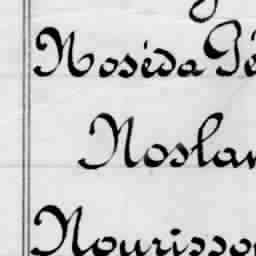 Noséda Pé
Noslan
Nourisso